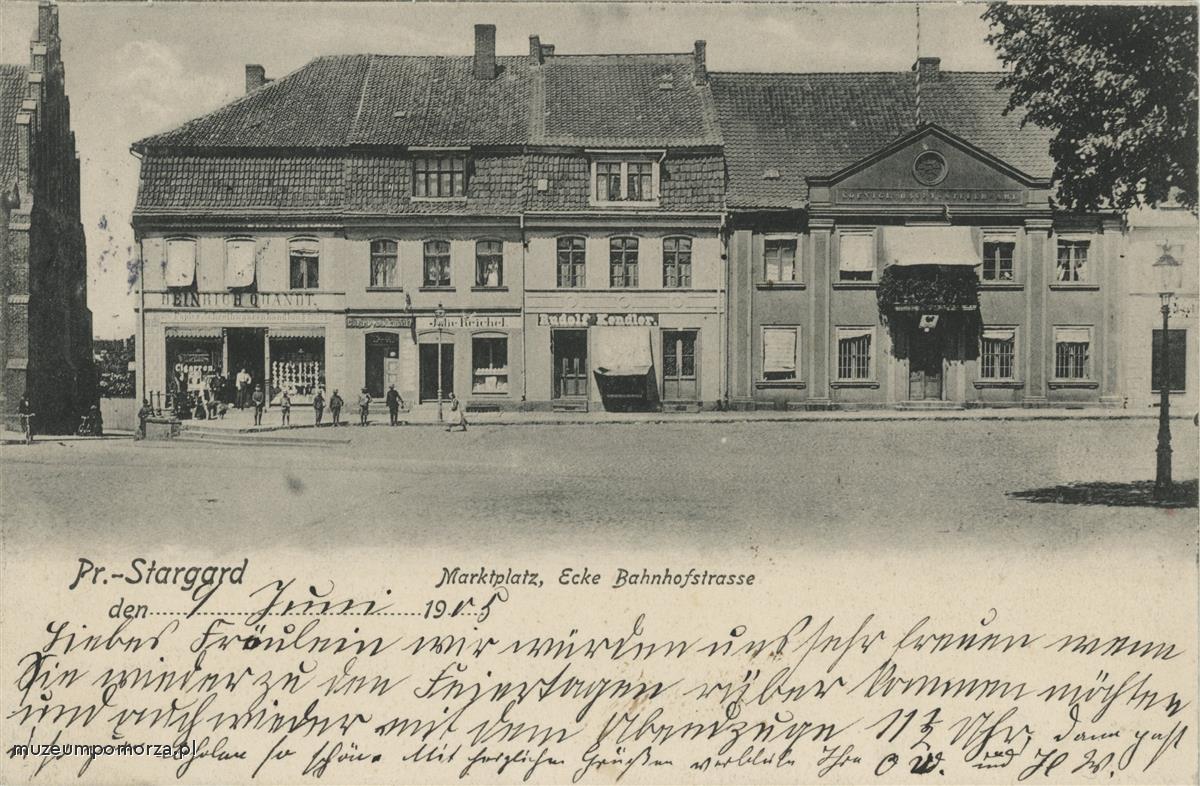 HEINRICH QUANDT.
Cigarren
Johs Reichel.
Rudolf Kendler.
Pr.-Stargard
Marktplatz, Ecke Bahnhofstrasse
den 9 Juni 1905
Liebes Fräulein wir würden uns sehr freuen wenn
Sie wieder zu den Feiertagen rüber kommen möchten
und auch wieder mit dem Abendzuge 11½ Uhr, dann past
so schön. Mit herzlichen Grüßen verbleibe Ihre O W. und H W.
muzeumpomorza.pl